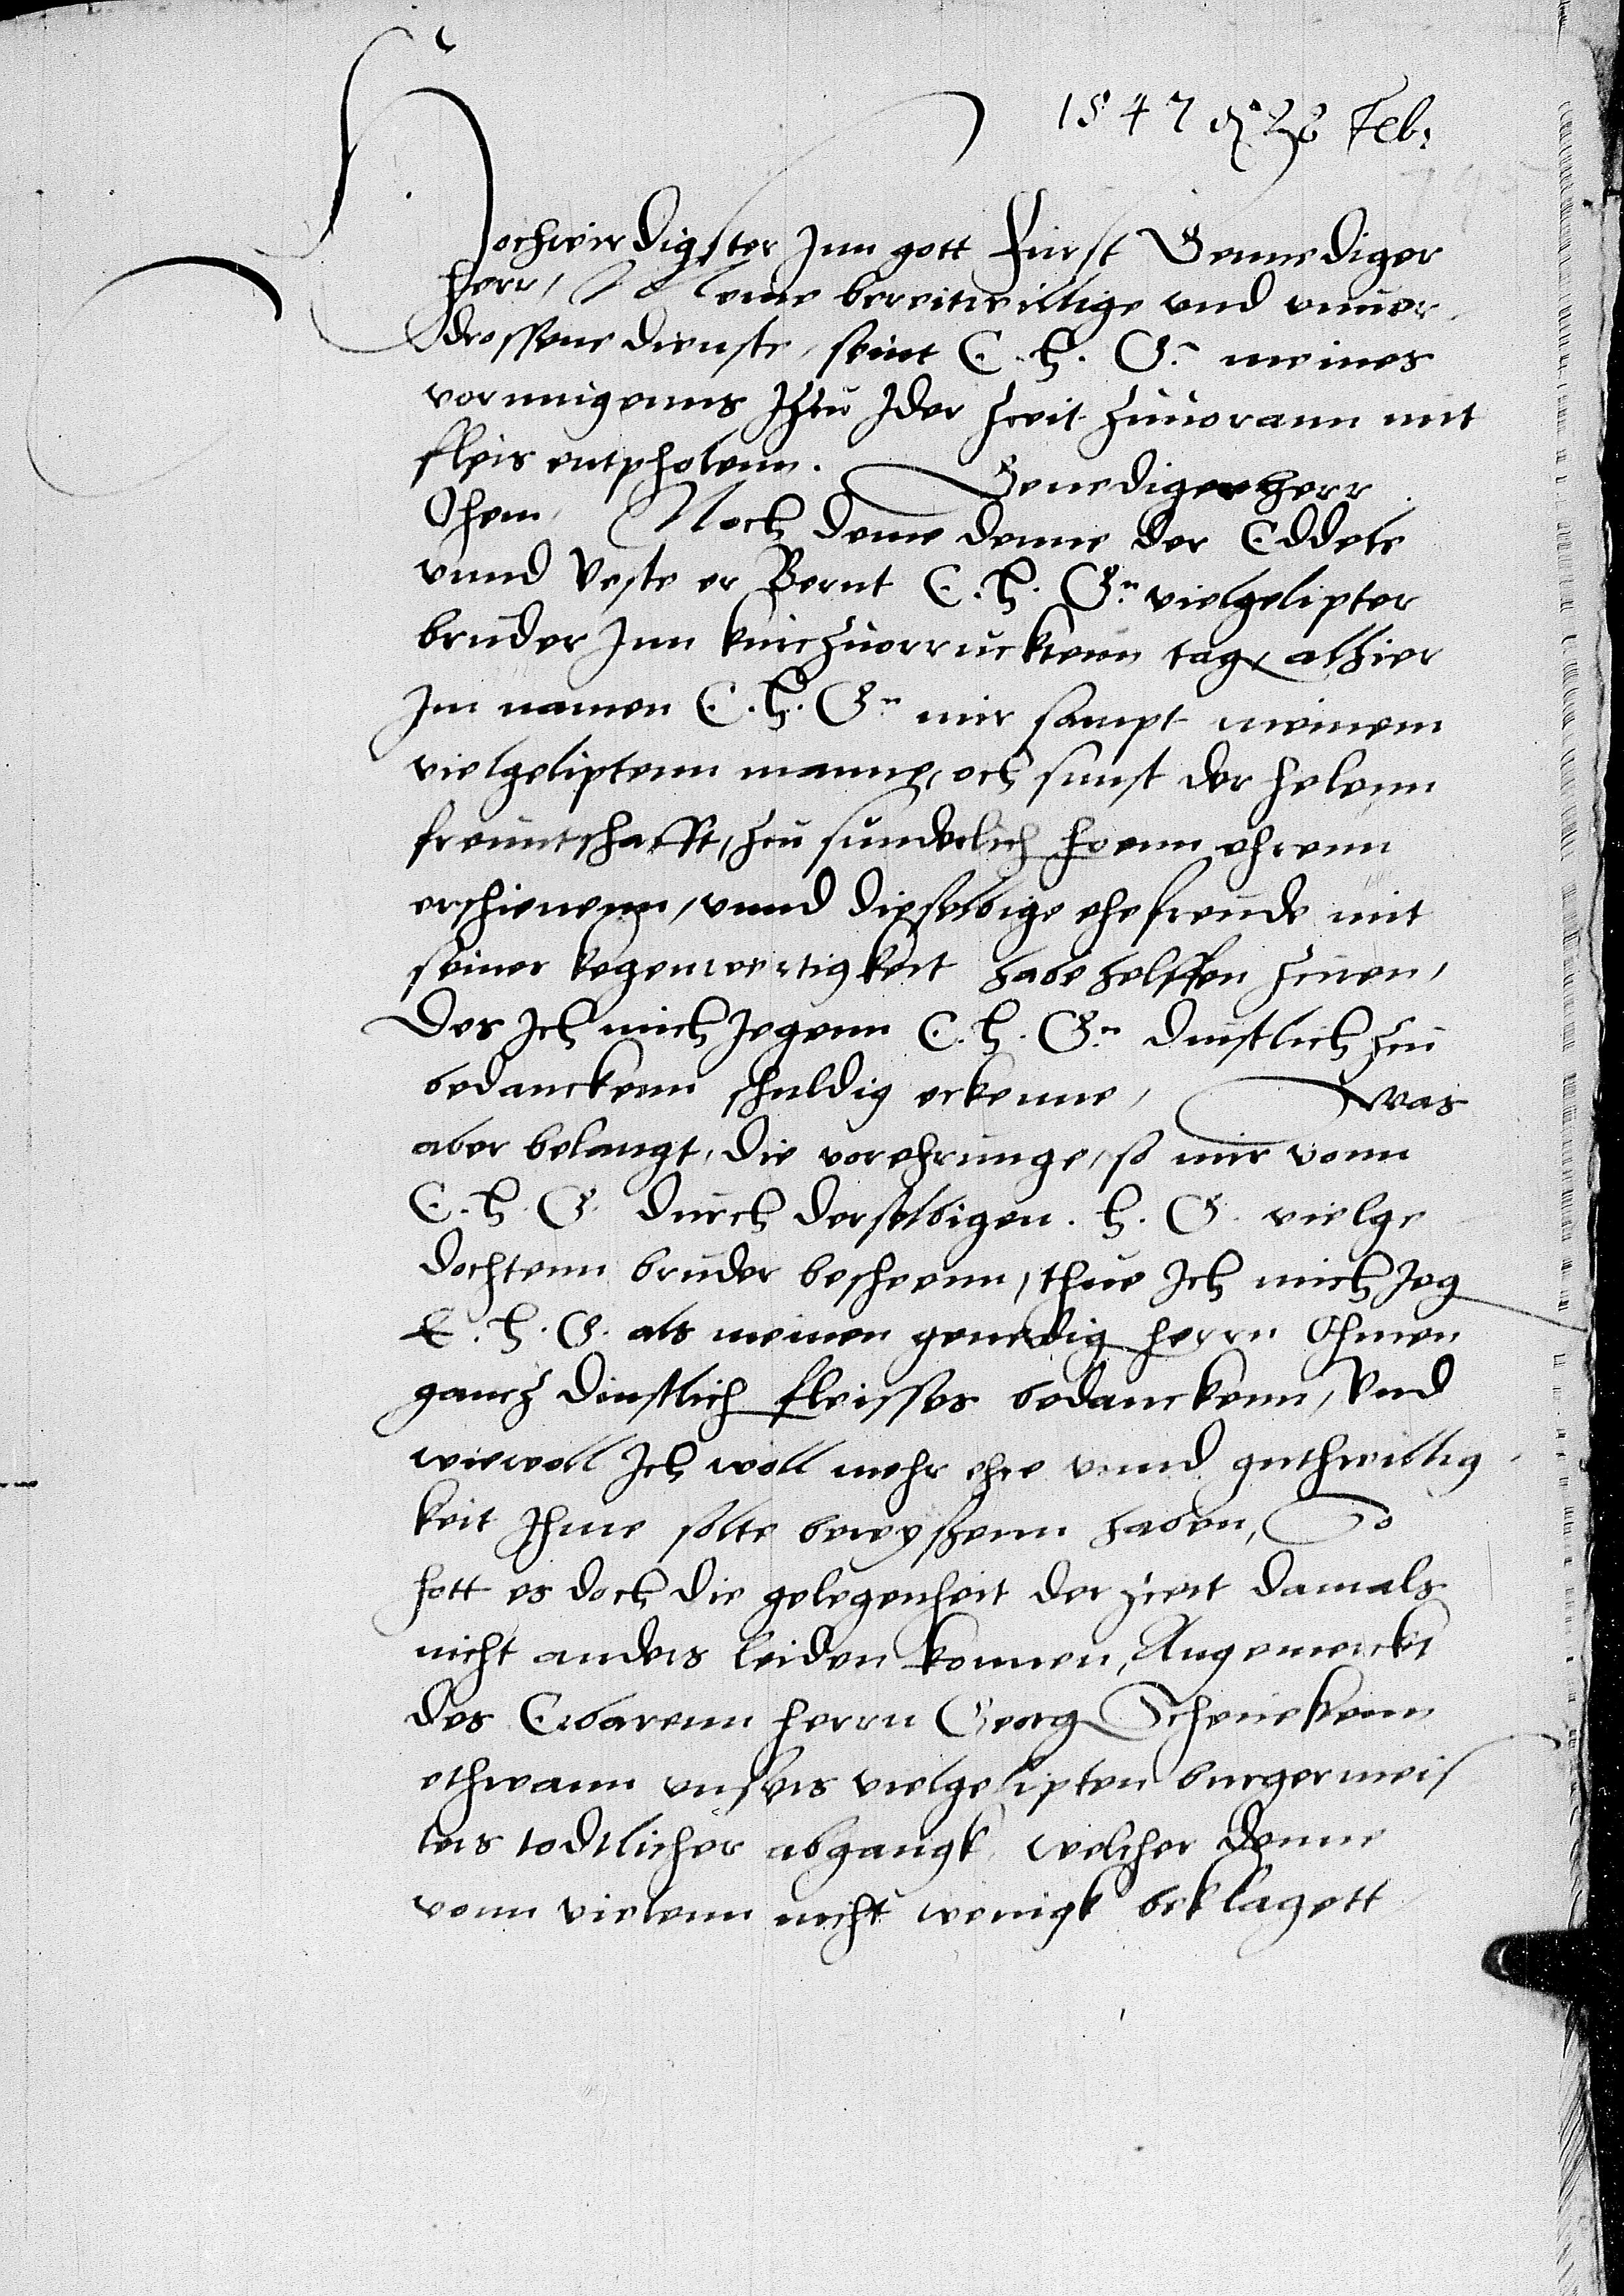 1547 d 28 Feb:
Hochwirdigster Inn gott Furst Gennediger
Herr, Meine bereitwillige vnd vnuor
drossene dienste, seint E. h. G. meines
vormugenns Itzu Ider zceit zuuorann mit
fleis entpholenn. Genediger Herr
Ohem, Noch deme denne der Eddele
vnnd Veste er Bernt E. h. G.n vielgelipter
bruder Inn kurczuorrucktenn tage alhier
Im namen E. h. G.n mir sampt meinem
vielgeliptenn manne, och sunst der helenn
freuntschafft, zcu sunderlich hoenn ehrenn
erschienenn, vnnd dieselbige ehefreude mit
seiner kegenwertigkeit habe helffen zciren,
Des Ich mich Jegenn E. h. G.n dinstlich zcu
bedanckenn schuldig erkenne, Was
aber belangt, die vorehrunge, so mir vonn
E. h. G. durch derselbigen. h. G. vielge
dochtenn bruder bescheenn, thue Ich mich Jeg
E. h. G. als meinen genedig herrn Ohmen
gancz dinstlich fleisses bedanckenn, Vnd
wiewoll Ich woll mehr ehre vnnd guthwillig
keit Ihme solte beweyszenn haben, So
hott es doch die gelegenheit der zceit damals
nicht anders leiden konnen, Angemerckt
des Erbarenn herrn Georg Scheweckenn
ethwann vnsers vielgelipten burgermeis
ters todtlicher abgangk, welcher denne
vonn vielenn nicht wenigk beklagett